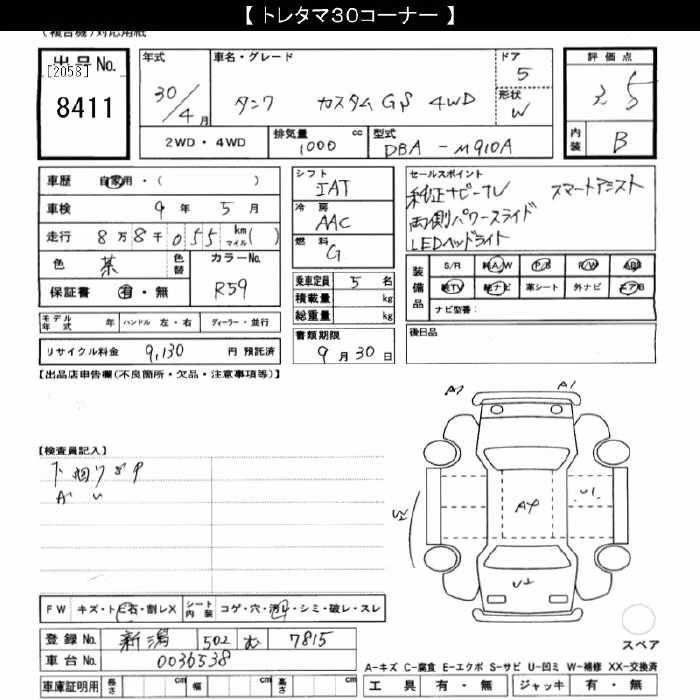 【 トレタマ30コーナー 】
(複合機)対応用紙
出品No.
[2058]
8411
年式
30/4月
車名・グレード
タンク カスタムGS 4WD
ドア
5
形状
W
評価点
3.5
内装
B
2WD・4WD
排気量
1000 cc
型式
DBA-M910A
車歴 自家用・( )
車検 9年 5月
走行 8万8千055 km マイル( )
色 茶 色替
カラーNo.
R59
保証書 有・無
シフト
IAT
冷房
AAC
燃料
G
セールスポイント
純正ナビーTV スマートアシスト
両側パワースライド
LEDヘッドライト
装備品
S/R 純A/W P/S P/W ABS
純TV 純ナビ 革シート 外ナビ エアB
ナビ型番:
乗車定員 5 名
積載量 kg
総重量 kg
モデル年式 年 ハンドル 左・右 ディーラー・並行
リサイクル料金 9,130 円 預託済
書類期限
9月30日
後日品
【出品店申告欄(不良箇所・欠品・注意事項等)】
【検査員記入】
A1
U1
FW キズ・トビ石・割レX シート内装 コゲ・穴・汚レ・シミ・破レ・スレ
登録No. 新潟 502 む 7815
車台No. 0036538
車庫証明用 長さ cm 幅 cm 高さ cm
スペア
A-キズ C-腐食 E-エクボ S-サビ U-凹ミ W-補修 XX-交換済
工具 有・無 ジャッキ 有・無